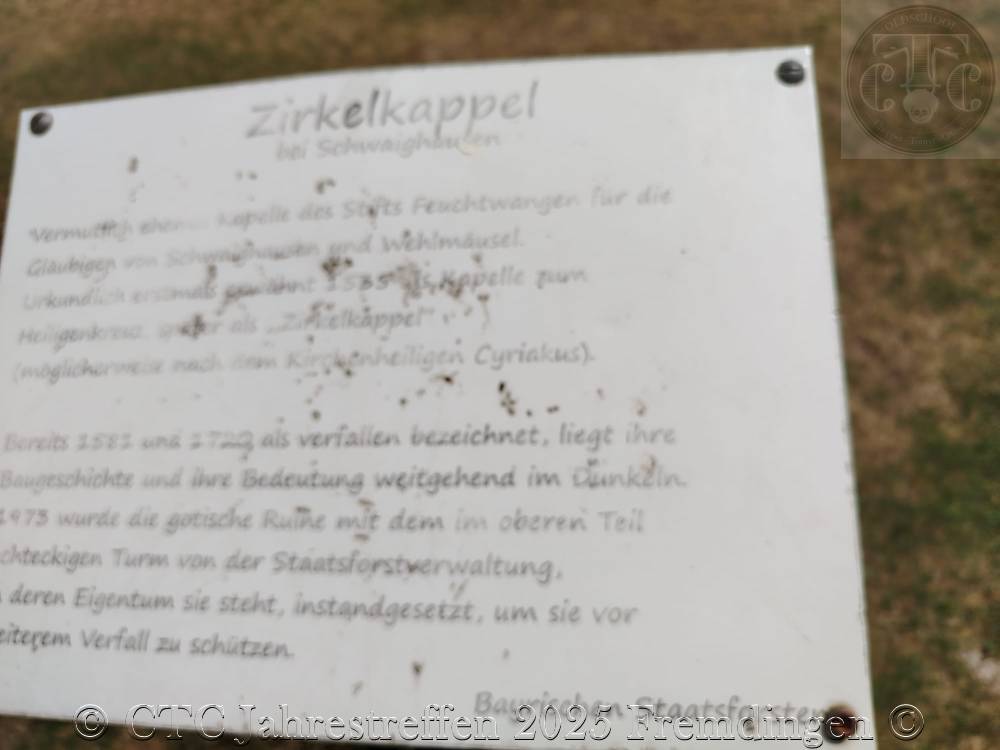 Zirkelkappel
bei Schwaighausen
Vermutlich Kapelle des Stifts Feuchtwangen für die
Gläubigen von Schwaighausen und Wehlmäusel.
Urkundlich erstmals erwähnt als Kapelle zum
Heiligenkreuz, später als „Zirkelkappel"
(möglicherweise nach dem Kirchenheiligen Cyriakus).
Bereits 1581 und als verfallen bezeichnet, liegt ihre
Baugeschichte und ihre Bedeutung weitgehend im Dunkeln.
1973 wurde die gotische Ruine mit dem im oberen Teil
chteckigen Turm von der Staatsforstverwaltung,
deren Eigentum sie steht, instandgesetzt, um sie vor
eiterem Verfall zu schützen.
Bayrischen Staatsforsten
© CTC Jahrestreffen 2025 Fremdingen ©
OLDSCHOOL
CTC